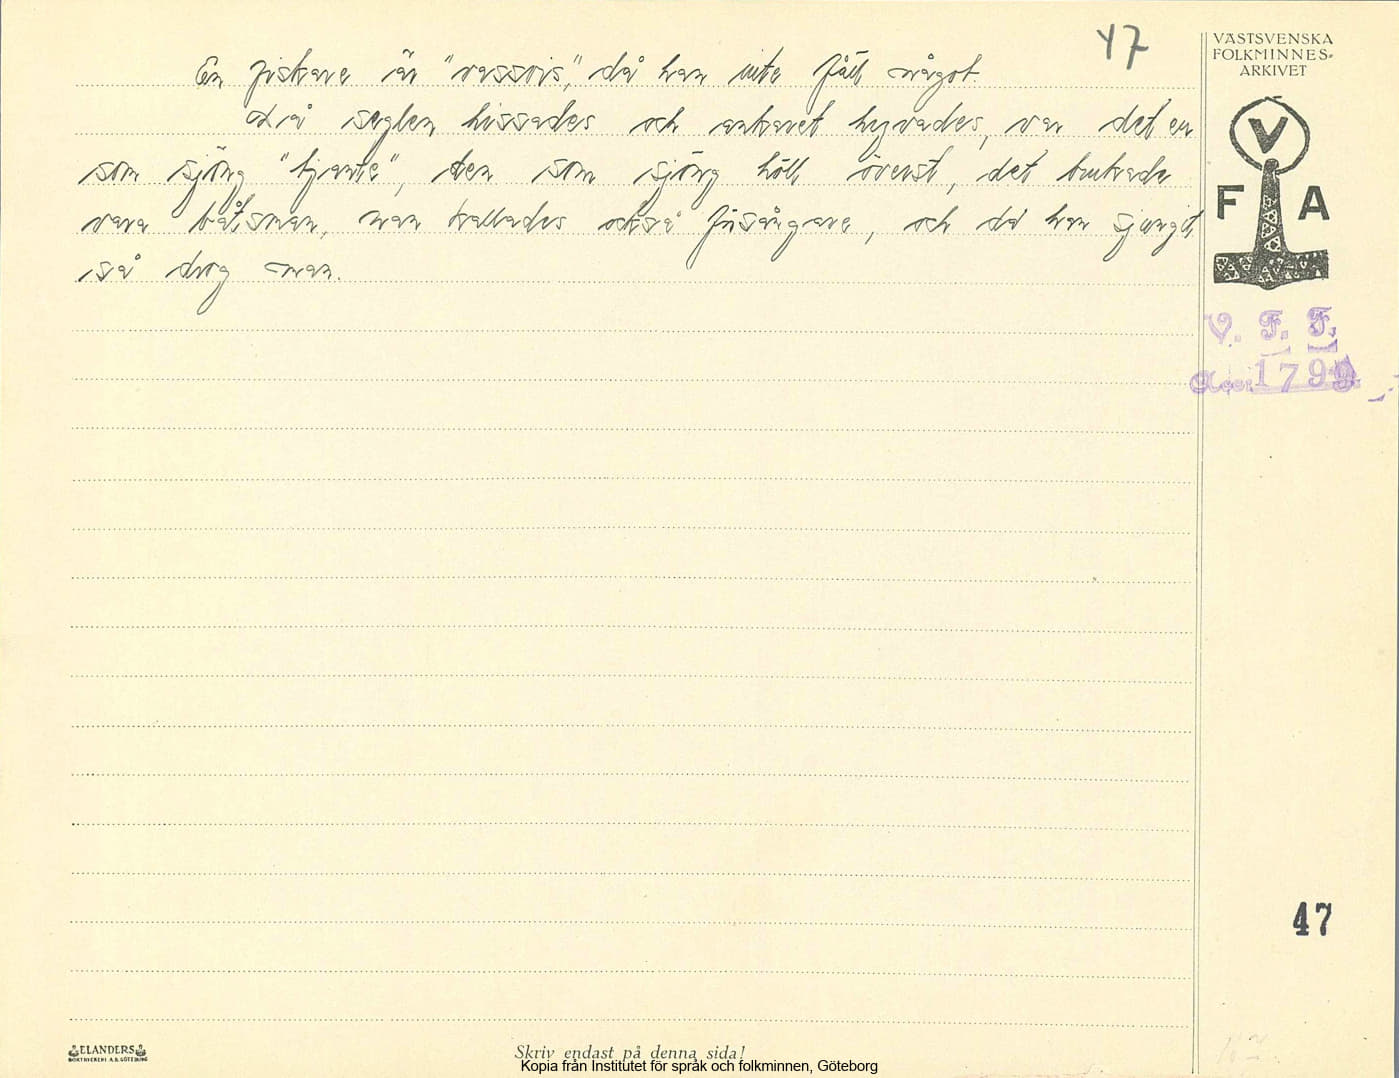 47
VÄSTSVENSKA
FOLKMINNES-
ARKIVET
En fiskare är "vassvis," då han inte fått något.
Då seglen hissades och ankaret hyvades, var det en
som sjöng "tjante", den som sjöng höll överst, det brukade
vara båtsman, man kallades också försångare, och då han sjungit,
så drog man.
V
F A
V. F. F.
Acc. 1799
47
ELANDERS
BOKTRYCKERI A.B. GÖTEBORG
Skriv endast på denna sida!
Kopia från Institutet för språk och folkminnen, Göteborg